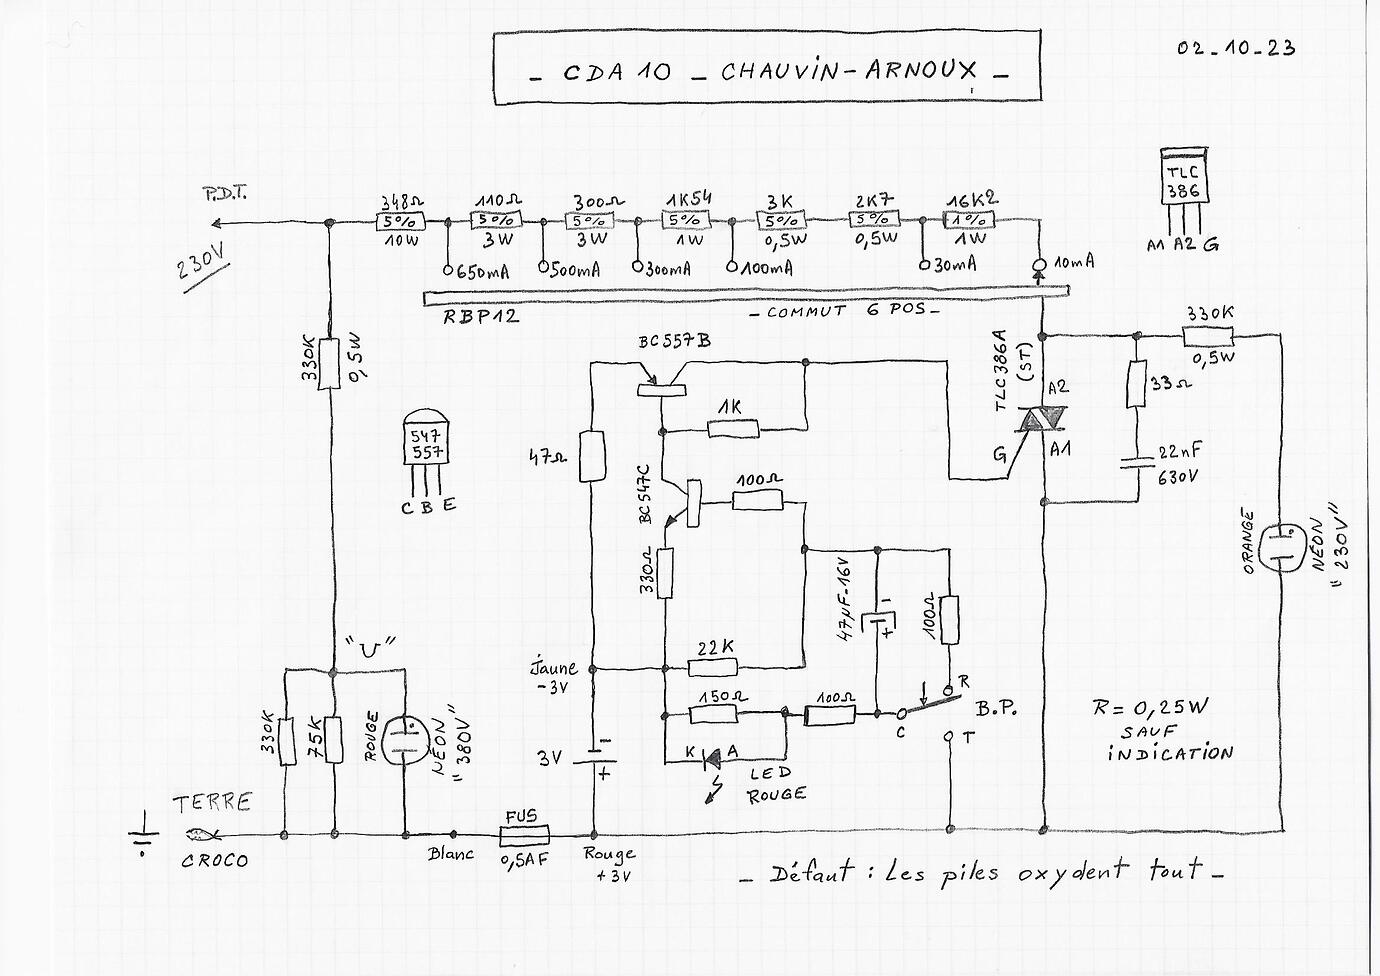 - CDA 10 - CHAUVIN-ARNOUX -
02-10-23
P.D.T.
230V
348Ω
5%
10W
110Ω
5%
3W
300Ω
5%
3W
1K54
5%
1W
3K
5%
0,5W
2K7
5%
0,5W
16K2
1%
1W
650mA
500mA
300mA
100mA
30mA
10mA
RBP12
- COMMUT 6 POS -
TLC
386
A1 A2 G
330K
0,5W
BC557B
1K
47Ω
BC547C
100Ω
330Ω
547
557
C B E
TLC386A
(ST)
A2
G
A1
330K
0,5W
33Ω
22nF
630V
ORANGE
NÉON
"230V"
47µF-16V
-
+
100Ω
"U"
Jaune
-3V
22K
150Ω
100Ω
R
B.P.
C
T
330K
75K
ROUGE
NÉON
"380V"
3V
-
+
K
A
LED
ROUGE
R = 0,25W
SAUF
INDICATION
TERRE
CROCO
Blanc
FUS
0,5AF
Rouge
+3V
- Défaut : Les piles oxydent tout -